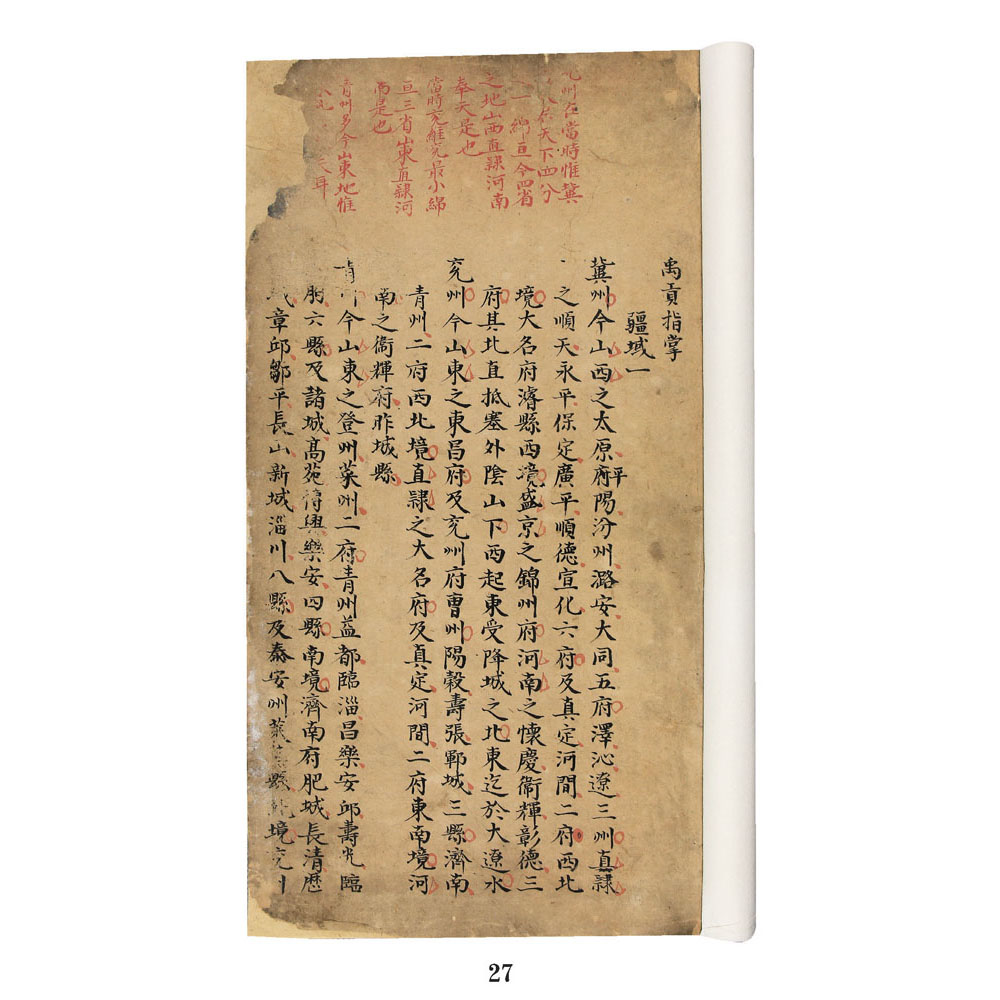 州在當時惟冀
天下四分
一緜亘今四省
之地山西直隸河南
奉天是也
當時兗雖兗最小綿
亘三省山東直隸河
南是也
青州多今山東地惟
禹貢指掌
疆域一
冀州今山西之太原府平陽汾州潞安大同五府澤沁遼三州真隸
之順天永平保定廣平順德宣化六府及真定河間二府西北
境大名府濬縣西境盛京之錦州府河南之懷慶衞輝彰德三
府其北直抵塞外陰山下西起東受降城之北東迄於大遼水
兗州今山東之東昌府及兗州府曹州陽穀壽張鄆城三縣濟南
青州二府西北境直隸之大名府及真定河間二府東南境河
南之衞輝府胙城縣
青州今山東之登州萊州二府青州益都臨淄昌樂安邱壽光臨
朐六縣及諸城高苑博興樂安四縣南境濟南府肥城長清歷
城章邱鄒平長山新城淄川八縣及泰安州萊蕪縣北境兗州
27